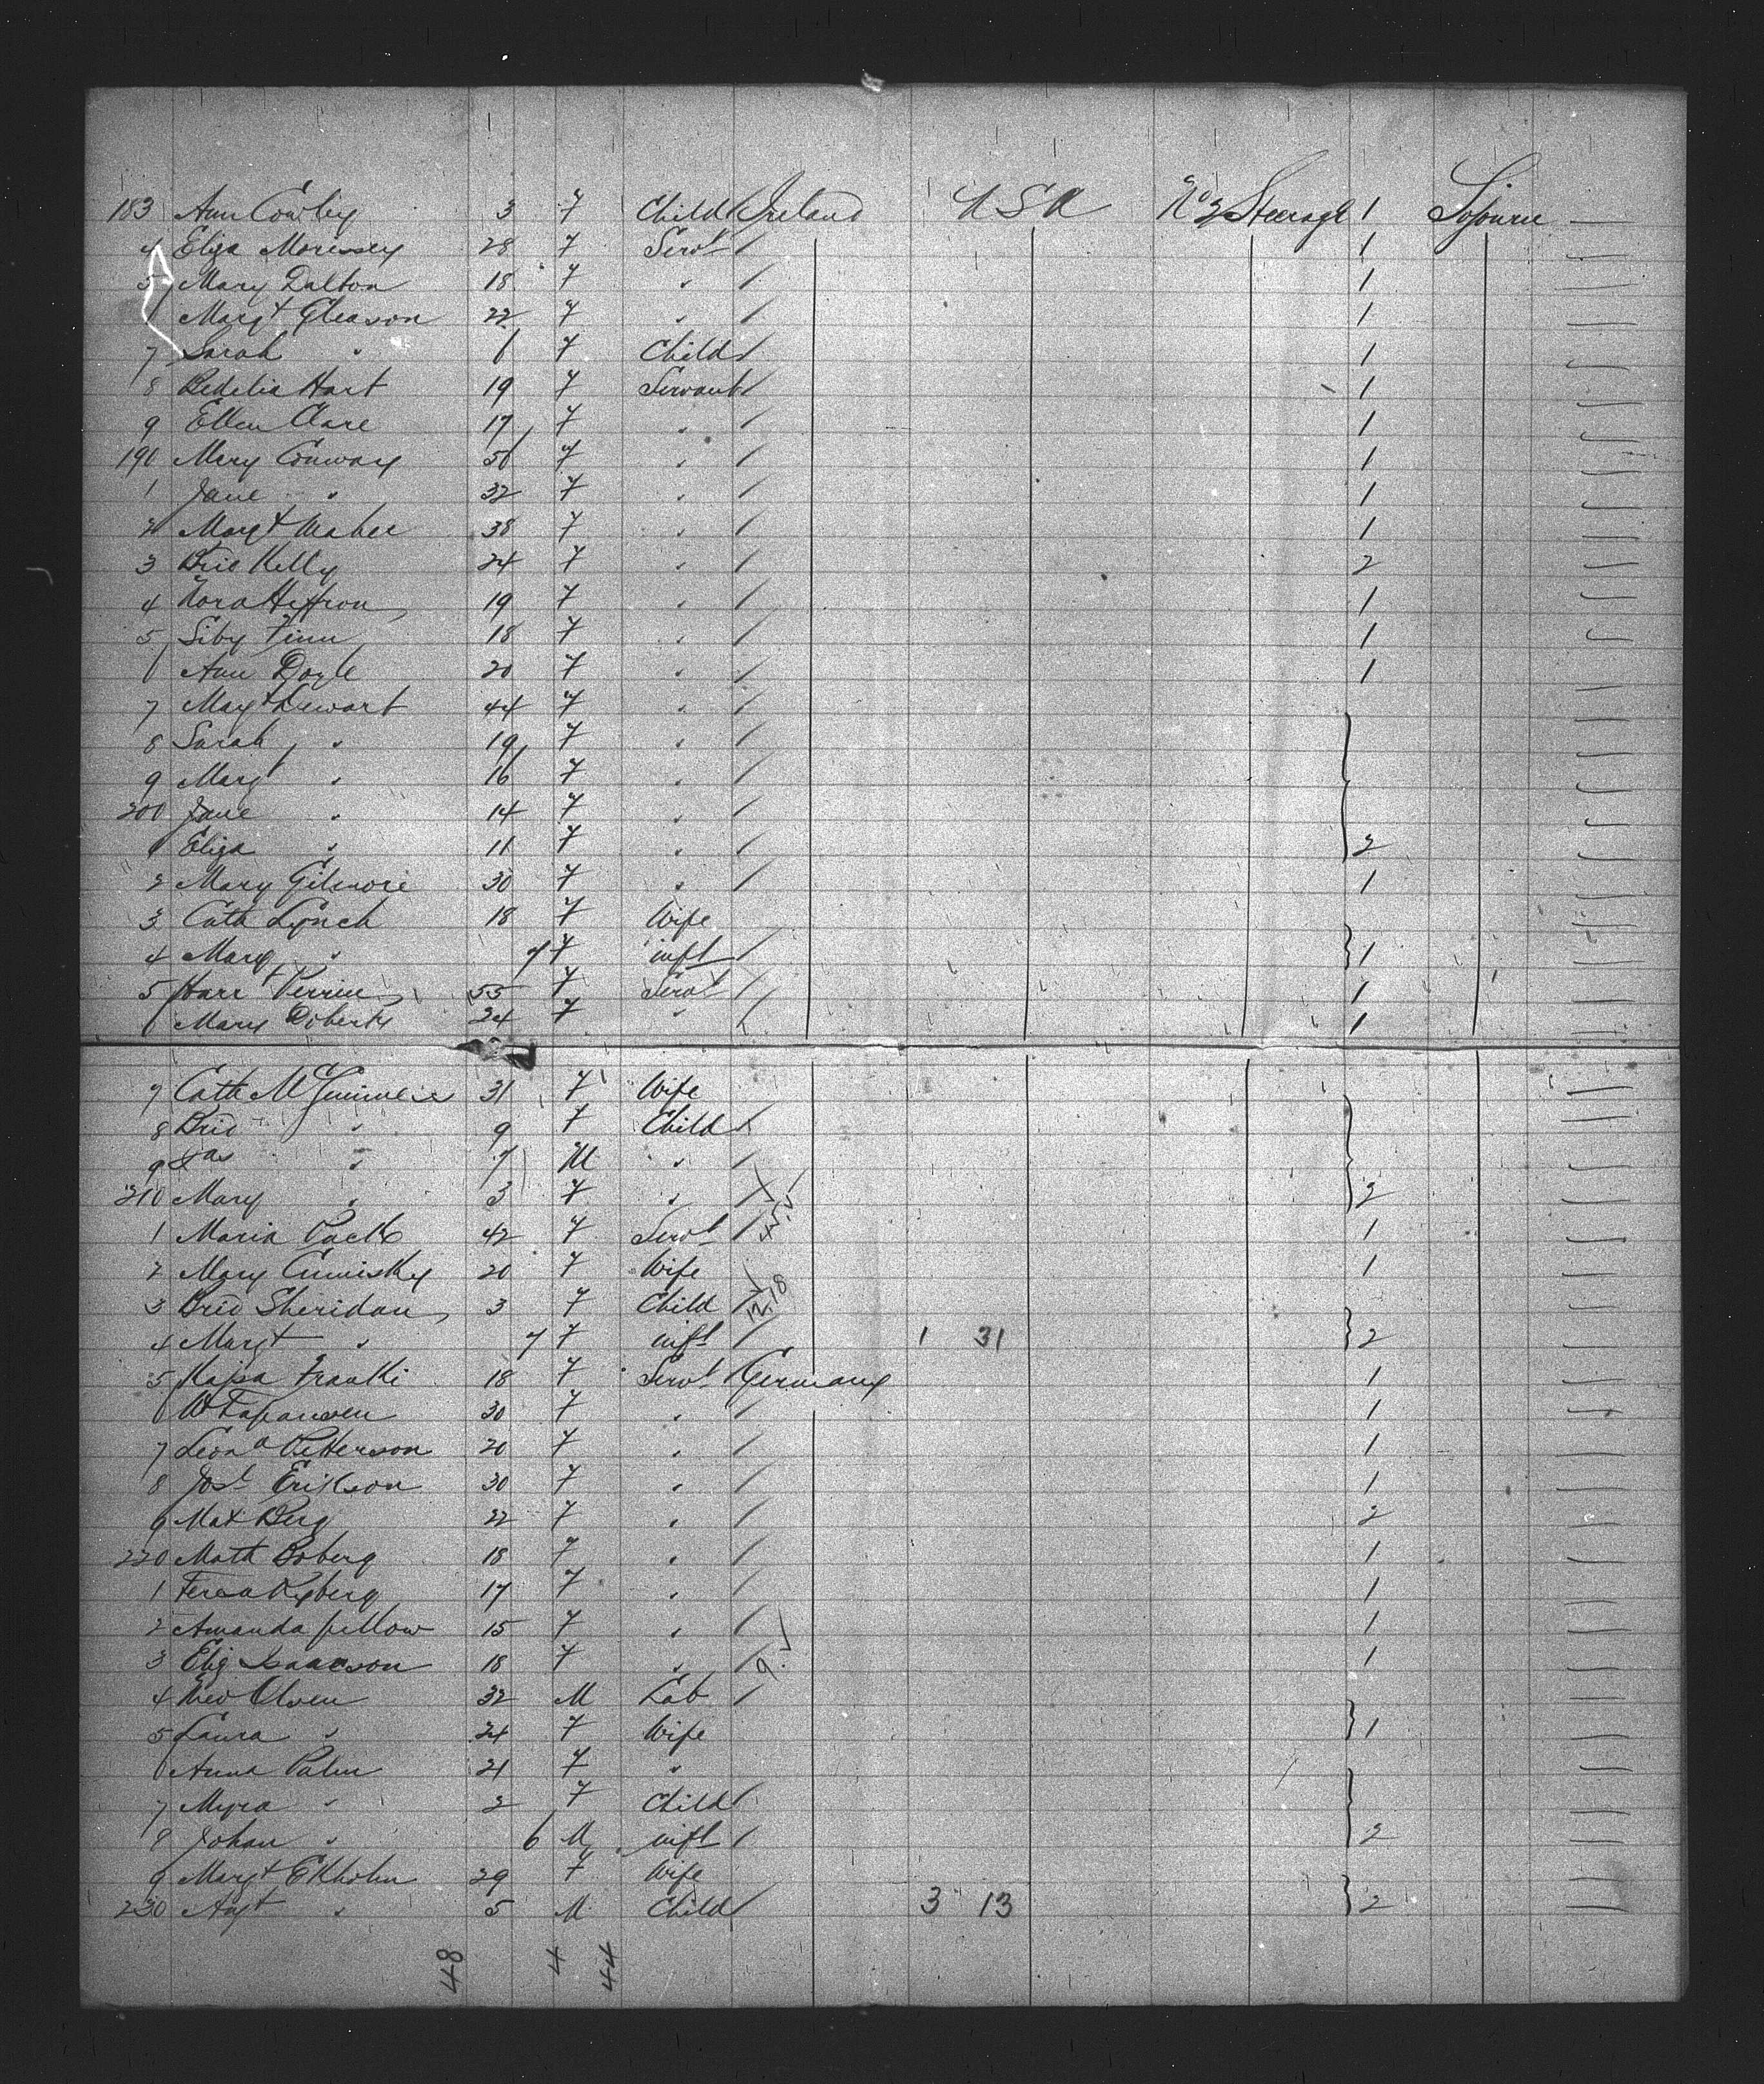 183 Ann Cowley 3 F Child Ireland U S A No 2 Steerage 1 Sojourn —
4 Eliza Morissey 28 F Servt / 1
5 Mary Dalton 18 F " / 1
Margt Gleason 22 F " / 1
7 Sarah " 6 F Child / 1
8 Bedelia Hart 19 F Servant / 1
9 Ellen Clare 17 F " / 1
190 Mary Conway 50 F " / 1
1 Jane " 32 F " / 1
2 Margt Maher 38 F " / 1
3 Brid Kelly 24 F " / 2
4 Nora Heffron 19 F " / 1
5 Siby Finn 18 F " / 1
6 Ann Doyle 20 F " / 1
7 Margt Stewart 44 F " /
8 Sarah " 19 F " /
9 Marg " 16 F " /
200 Jane " 14 F " /
1 Eliza " 11 F " / 2
2 Mary Gilmore 30 F " / 1
3 Cath Lynch 18 F Wife
4 Mary " 7 F inft / 1
5 Harrt Perrin 55 F Servt / 1
6 Mary Doherty 24 F " / 1
7 Cath 31 F Wife
8 Brid " 9 F Child /
9 Jas " 7 M " /
210 Mary " 3 F " / 2
1 Maria 42 F Servt / 45 1
2 Mary Cumisky 20 F Wife 1
3 Brid Sheridan 3 F Child / 12.18
4 Margt " 7 F inft / 1 31 2
5 Kajsa Franki 18 F Servt / Germany 1
6 30 F " / 1
7 Leona Petterson 20 F " / 1
8 Josl Erikson 30 F " / 1
9 Mat Berg 22 F " / 2
220 Math Boberg 18 F " / 1
1 Ryberg 17 F " / 1
2 Amanda 15 F " / 1
3 Eliz Isaacson 18 F " / 9 1
4 Olsen 32 M Lab /
5 Laura " 24 F Wife 1
6 Anna Palm 21 F "
7 Myra " 2 F Child /
8 Johan " 6 M inft / 2
9 Margt Ekholm 29 F Wife
230 Augt " 5 M Child / 3 13 2
48 4 44